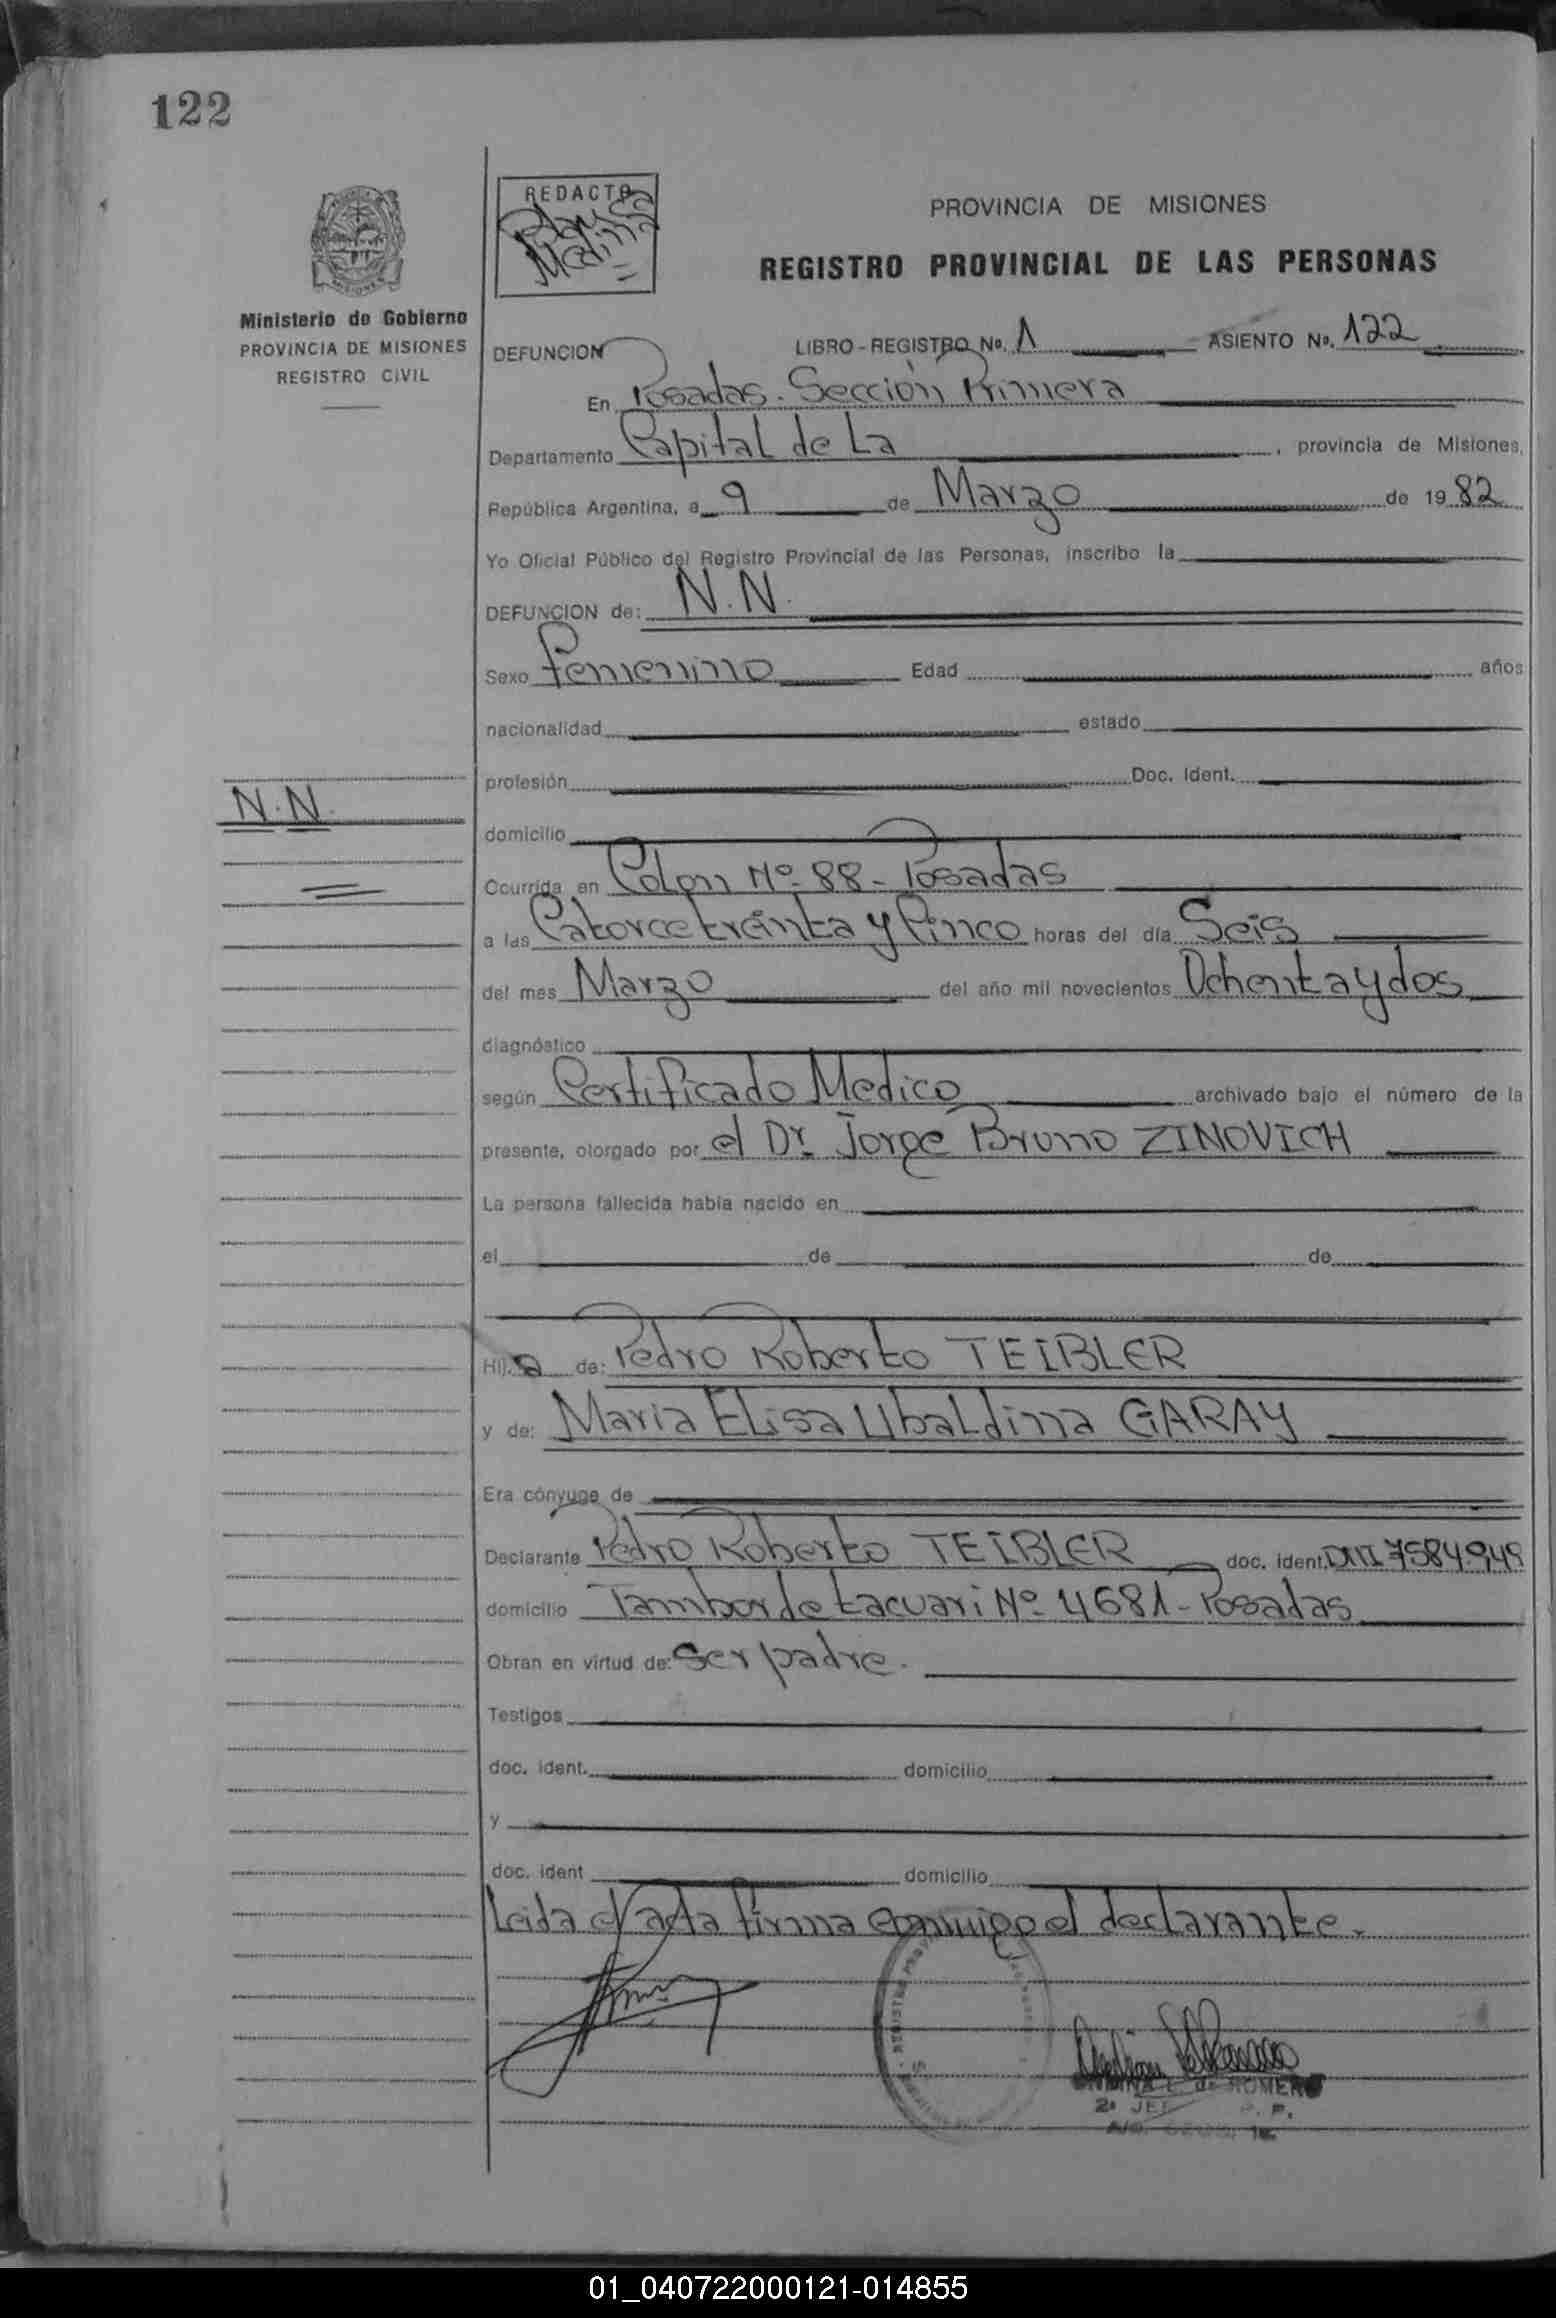 122
REDACTO
Medina
PROVINCIA DE MISIONES
REGISTRO PROVINCIAL DE LAS PERSONAS
MISIONES
Ministerio de Gobierno
PROVINCIA DE MISIONES
REGISTRO CIVIL
DEFUNCION LIBRO - REGISTRO No. 1 ASIENTO No. 122
En Posadas. Sección Primera
Departamento Capital de La , provincia de Misiones,
República Argentina, a 9 de Marzo de 19 82
Yo Oficial Público del Registro Provincial de las Personas, inscribo la
DEFUNCION de: N.N.
Sexo Femenino Edad años
nacionalidad estado
profesión Doc. Ident.
N.N.
domicilio
Ocurrida en Colon Nº 88 - Posadas
a las Catorce treinta y Cinco horas del día Seis
del mes Marzo del año mil novecientos Ochenta y dos
diagnóstico
según Certificado Medico archivado bajo el número de la
presente, otorgado por el Dr. Jorge Bruno ZINOVICH
La persona fallecida había nacido en
el de de
Hij a de: Pedro Roberto TEIBLER
y de: Maria Elisa Ubaldina GARAY
Era cónyuge de
Declarante Pedro Roberto TEIBLER doc. ident. DNI 7584949
domicilio Tambor de tacuari Nº 4681 - Posadas
Obran en virtud de: Ser padre.
Testigos
doc. ident. domicilio
y
doc. ident domicilio
Leida el acta firma conmigo el declarante.
de ROMERO
2º JEF P. P.
01_040722000121-014855